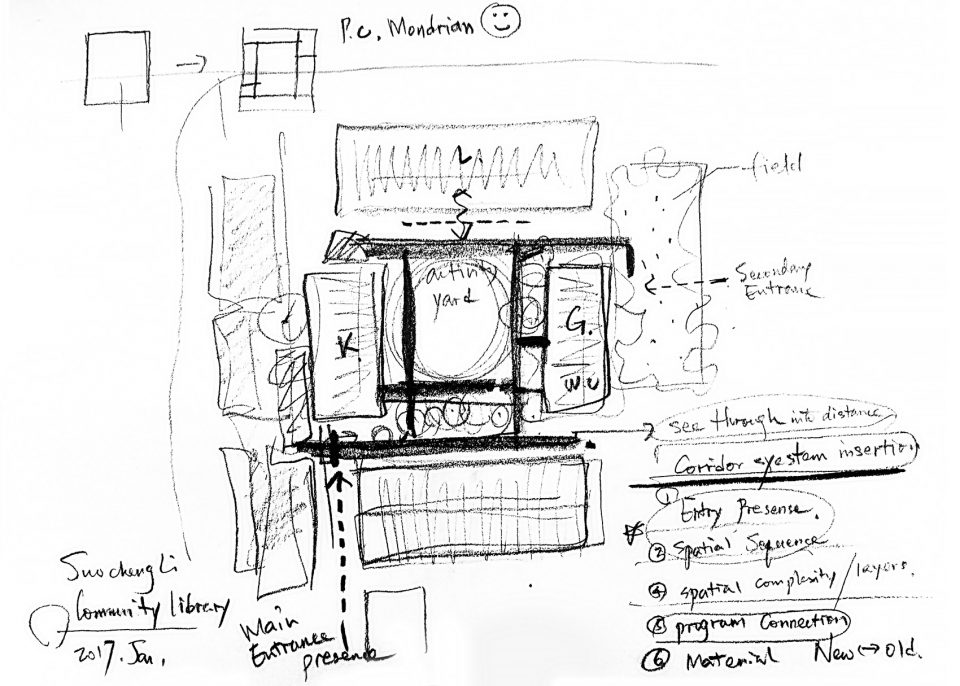 P.C. Mondrian
L
field
activity
yard
Secondary
Entrance
K
G.
W.C
see through into distance
Corridor system insertion
① Entry Presense.
② Spatial Sequence
④ spatial complexity / layers.
⑤ program Connection
⑥ Material New ↔ Old.
SuochengLi
Community Library
2017. Jan.
Main
Entrance
presence